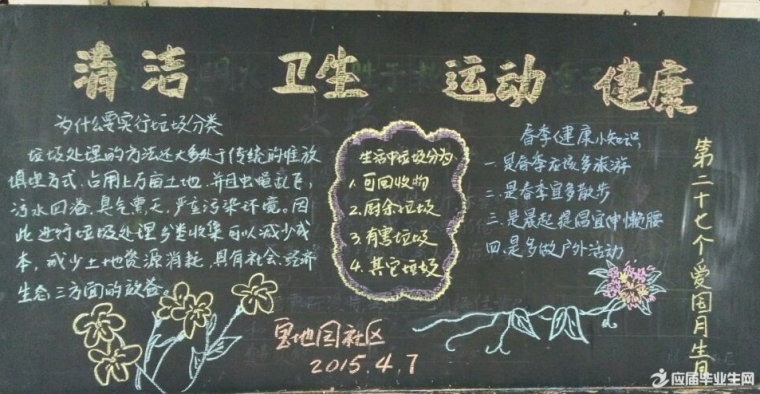 清洁 卫生 运动 健康
为什么要实行垃圾分类
垃圾处理的方法还大多处于传统的堆放
填埋方式，占用上万亩土地，并且虫蝇乱飞，
污水四溢，臭气熏天，严重污染环境。因
此进行垃圾处理分类收集可以减少成
本，减少土地资源消耗，具有社会、经济
生态三方面的效益。
生活中垃圾分为：
1.可回收物
2.厨余垃圾
3.有害垃圾
4.其它垃圾
春季健康小知识
一.是春季应该多旅游
二.是春季宜多散步
三.是晨起提倡宜伸懒腰
四.是多做户外活动
第二十七个爱国月生月
地园社区
2015.4.7
应届毕业生网